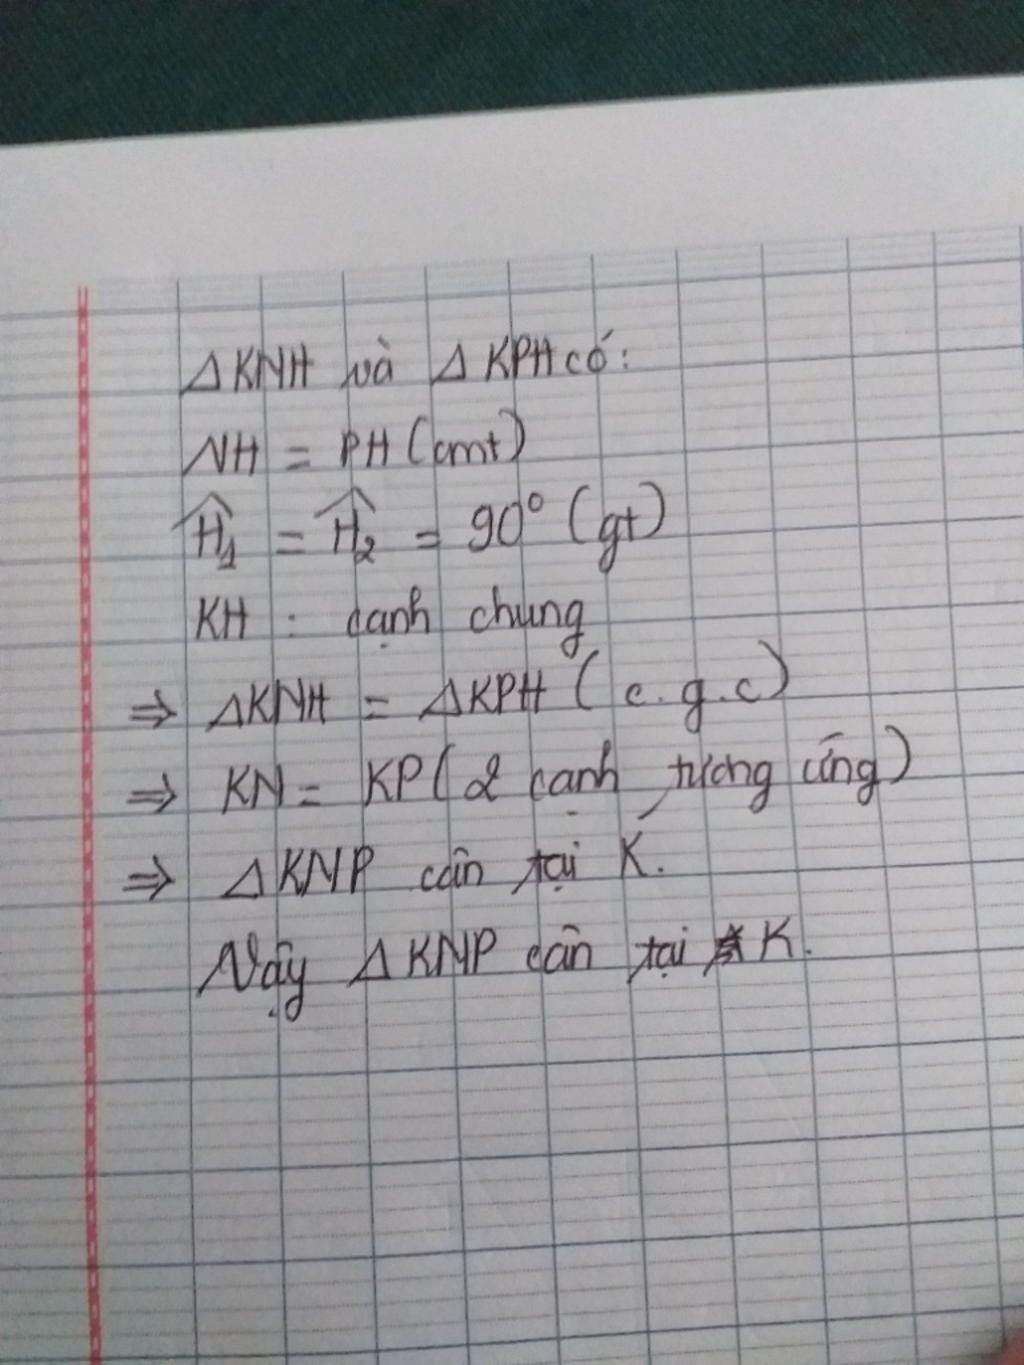 Δ KNH và Δ KPH có:
NH = PH (cmt)
Ĥ₁ = Ĥ₂ = 90° (gt)
KH : cạnh chung
⇒ ΔKNH = ΔKPH (c.g.c)
⇒ KN = KP (2 cạnh tương ứng)
⇒ ΔKNP cân tại K.
Vậy ΔKNP cân tại K.